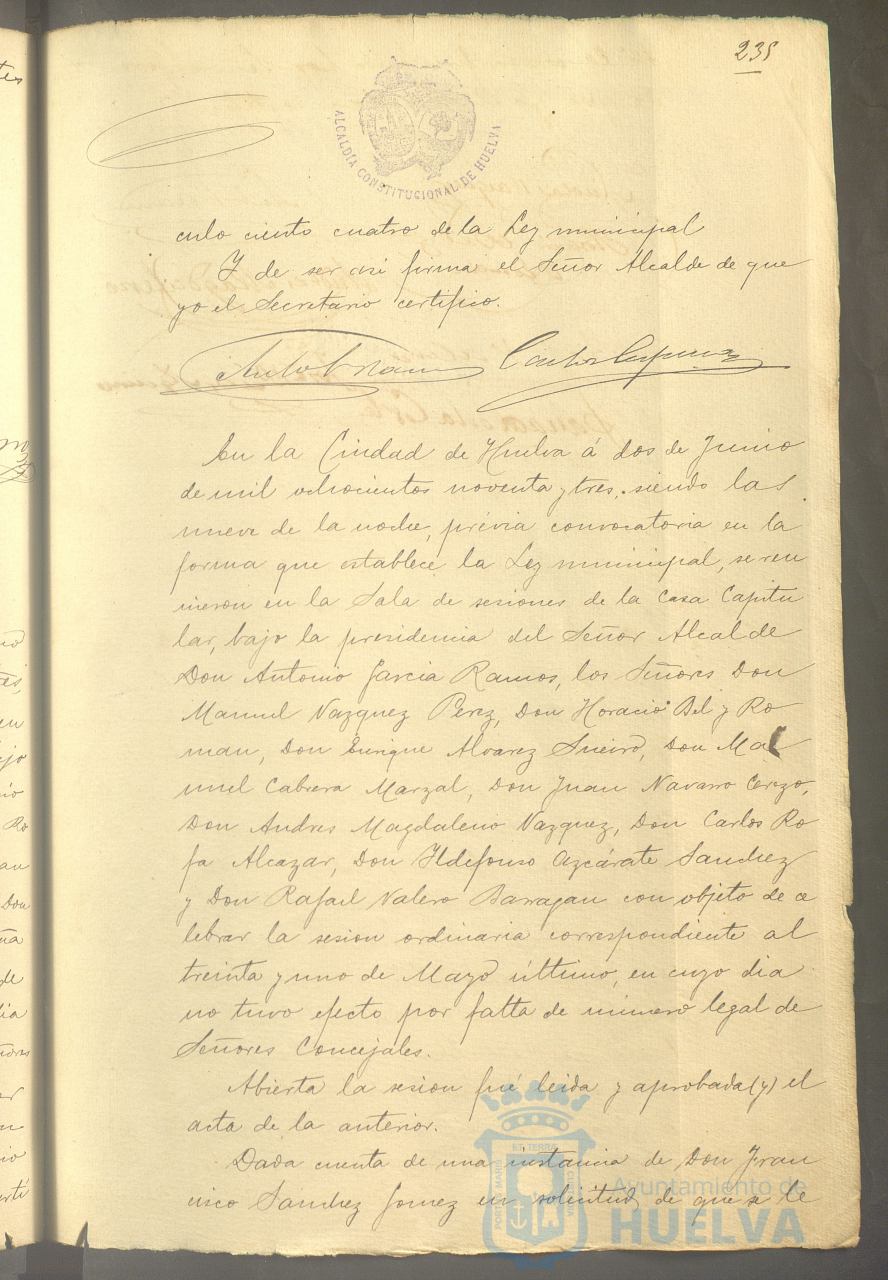 235
ALCALDÍA CONSTITUCIONAL DE HUELVA
culo ciento cuatro de la Ley municipal
Y de ser así firma el Señor Alcalde de que
yo el Secretario certifico.
En la Ciudad de Huelva á dos de Junio
de mil ochocientos noventa y tres, siendo las
nueve de la noche, prévia convocatoria en la
forma que establece la Ley municipal, se reu
nieron en la Sala de sesiones de la Casa Capitu
lar, bajo la presidencia del Señor Alcalde
Don Antonio Garcia Ramos, los Señores Don
Manuel Vazquez Perez, Don Horacio Bel y Ro
man, Don Enrique Alvarez Sneiro, Don Ma
nuel Cabrera Marzal, Don Juan Navarro Cerezo,
Don Andres Magdaleno Vazquez, Don Carlos Ro
fa Alcazar, Don Ildefonso Azcárate Sanchez
y Don Rafael Valero Barragan con objeto de ce
lebrar la sesion ordinaria correspondiente al
treinta y uno de Mayo último, en cuyo dia
no tuvo efecto por falta de número legal de
Señores Concejales.
Abierta la sesion fué leida y aprobada (y) el
acta de la anterior.
Dada cuenta de una instancia de Don Fran
cisco Sanchez Gomez en solicitud de que se le
Ayuntamiento de
HUELVA